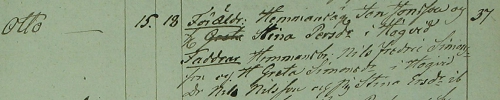 Otto — 15. 18 Föräldr: Hemmansäg. Jon Jonsson og 37
H. Greta Stina Persdr i Hogvid
Faddrar Hemmansbr. Nils Fredric Simon-
son og H. Greta Simonsdr i Hogvid
Dr. Nils Nilsson og Pig. Stina Ersdr ib